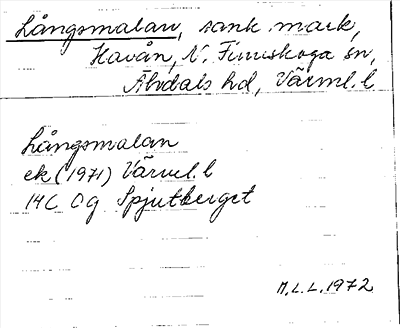 Långsmalan, sank mark,
Havån, N. Finnskoga sn,
Älvdals hd, Värml. l.
Långsmalan
ek (1971) Värml. l
14C Og Spjutberget
M.L.L. 1972